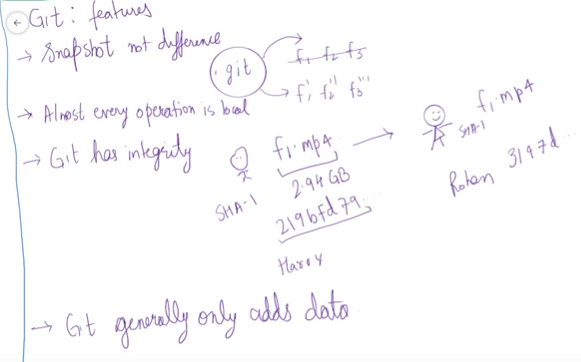 Git : features
→ Snapshot not difference
git
f1 f2 f3
f1' f2'' f3'''
→ Almost every operation is local
→ Git has integrity
SHA-1
f1.mp4
2.94 GB
219bfd79...
Harry
f1.mp4
SHA-1
Rohan 3197d...
→ Git generally only adds data